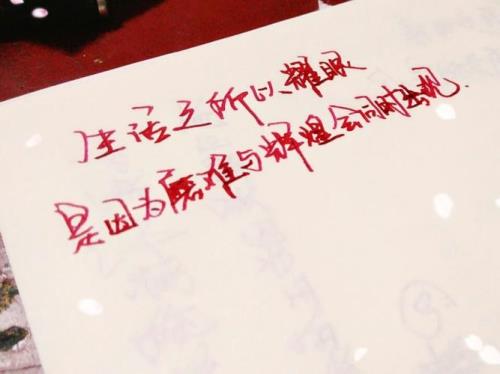 生活之所以耀眼
是因为磨难与辉煌会同时出现.